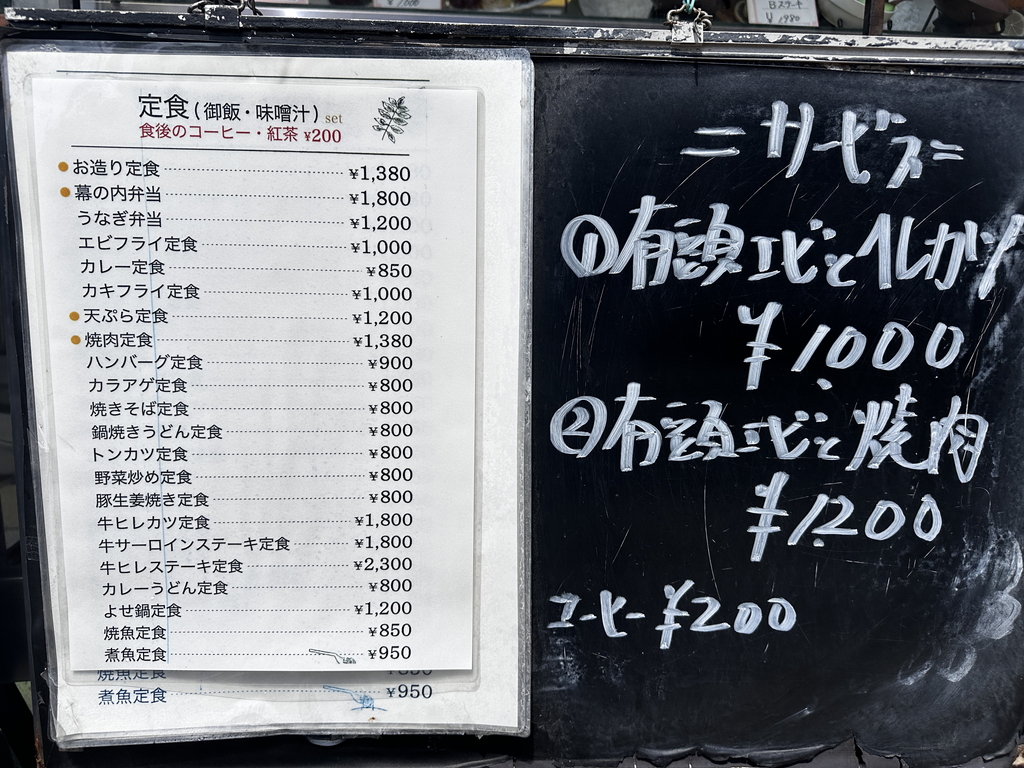 Bステーキ
¥1980
定食(御飯・味噌汁) set
食後のコーヒー・紅茶 ¥200
お造り定食 ¥1,380
幕の内弁当 ¥1,800
うなぎ弁当 ¥1,200
エビフライ定食 ¥1,000
カレー定食 ¥850
カキフライ定食 ¥1,000
天ぷら定食 ¥1,200
焼肉定食 ¥1,380
ハンバーグ定食 ¥900
カラアゲ定食 ¥800
焼きそば定食 ¥800
鍋焼きうどん定食 ¥800
トンカツ定食 ¥800
野菜炒め定食 ¥800
豚生姜焼き定食 ¥800
牛ヒレカツ定食 ¥1,800
牛サーロインステーキ定食 ¥1,800
牛ヒレステーキ定食 ¥2,300
カレーうどん定食 ¥800
よせ鍋定食 ¥1,200
焼魚定食 ¥850
煮魚定食 ¥950
焼魚定食
煮魚定食 ¥950
=サービス=
①有頭エビとヘレカツ
¥1000
②有頭エビと焼肉
¥1200
コーヒー ¥200